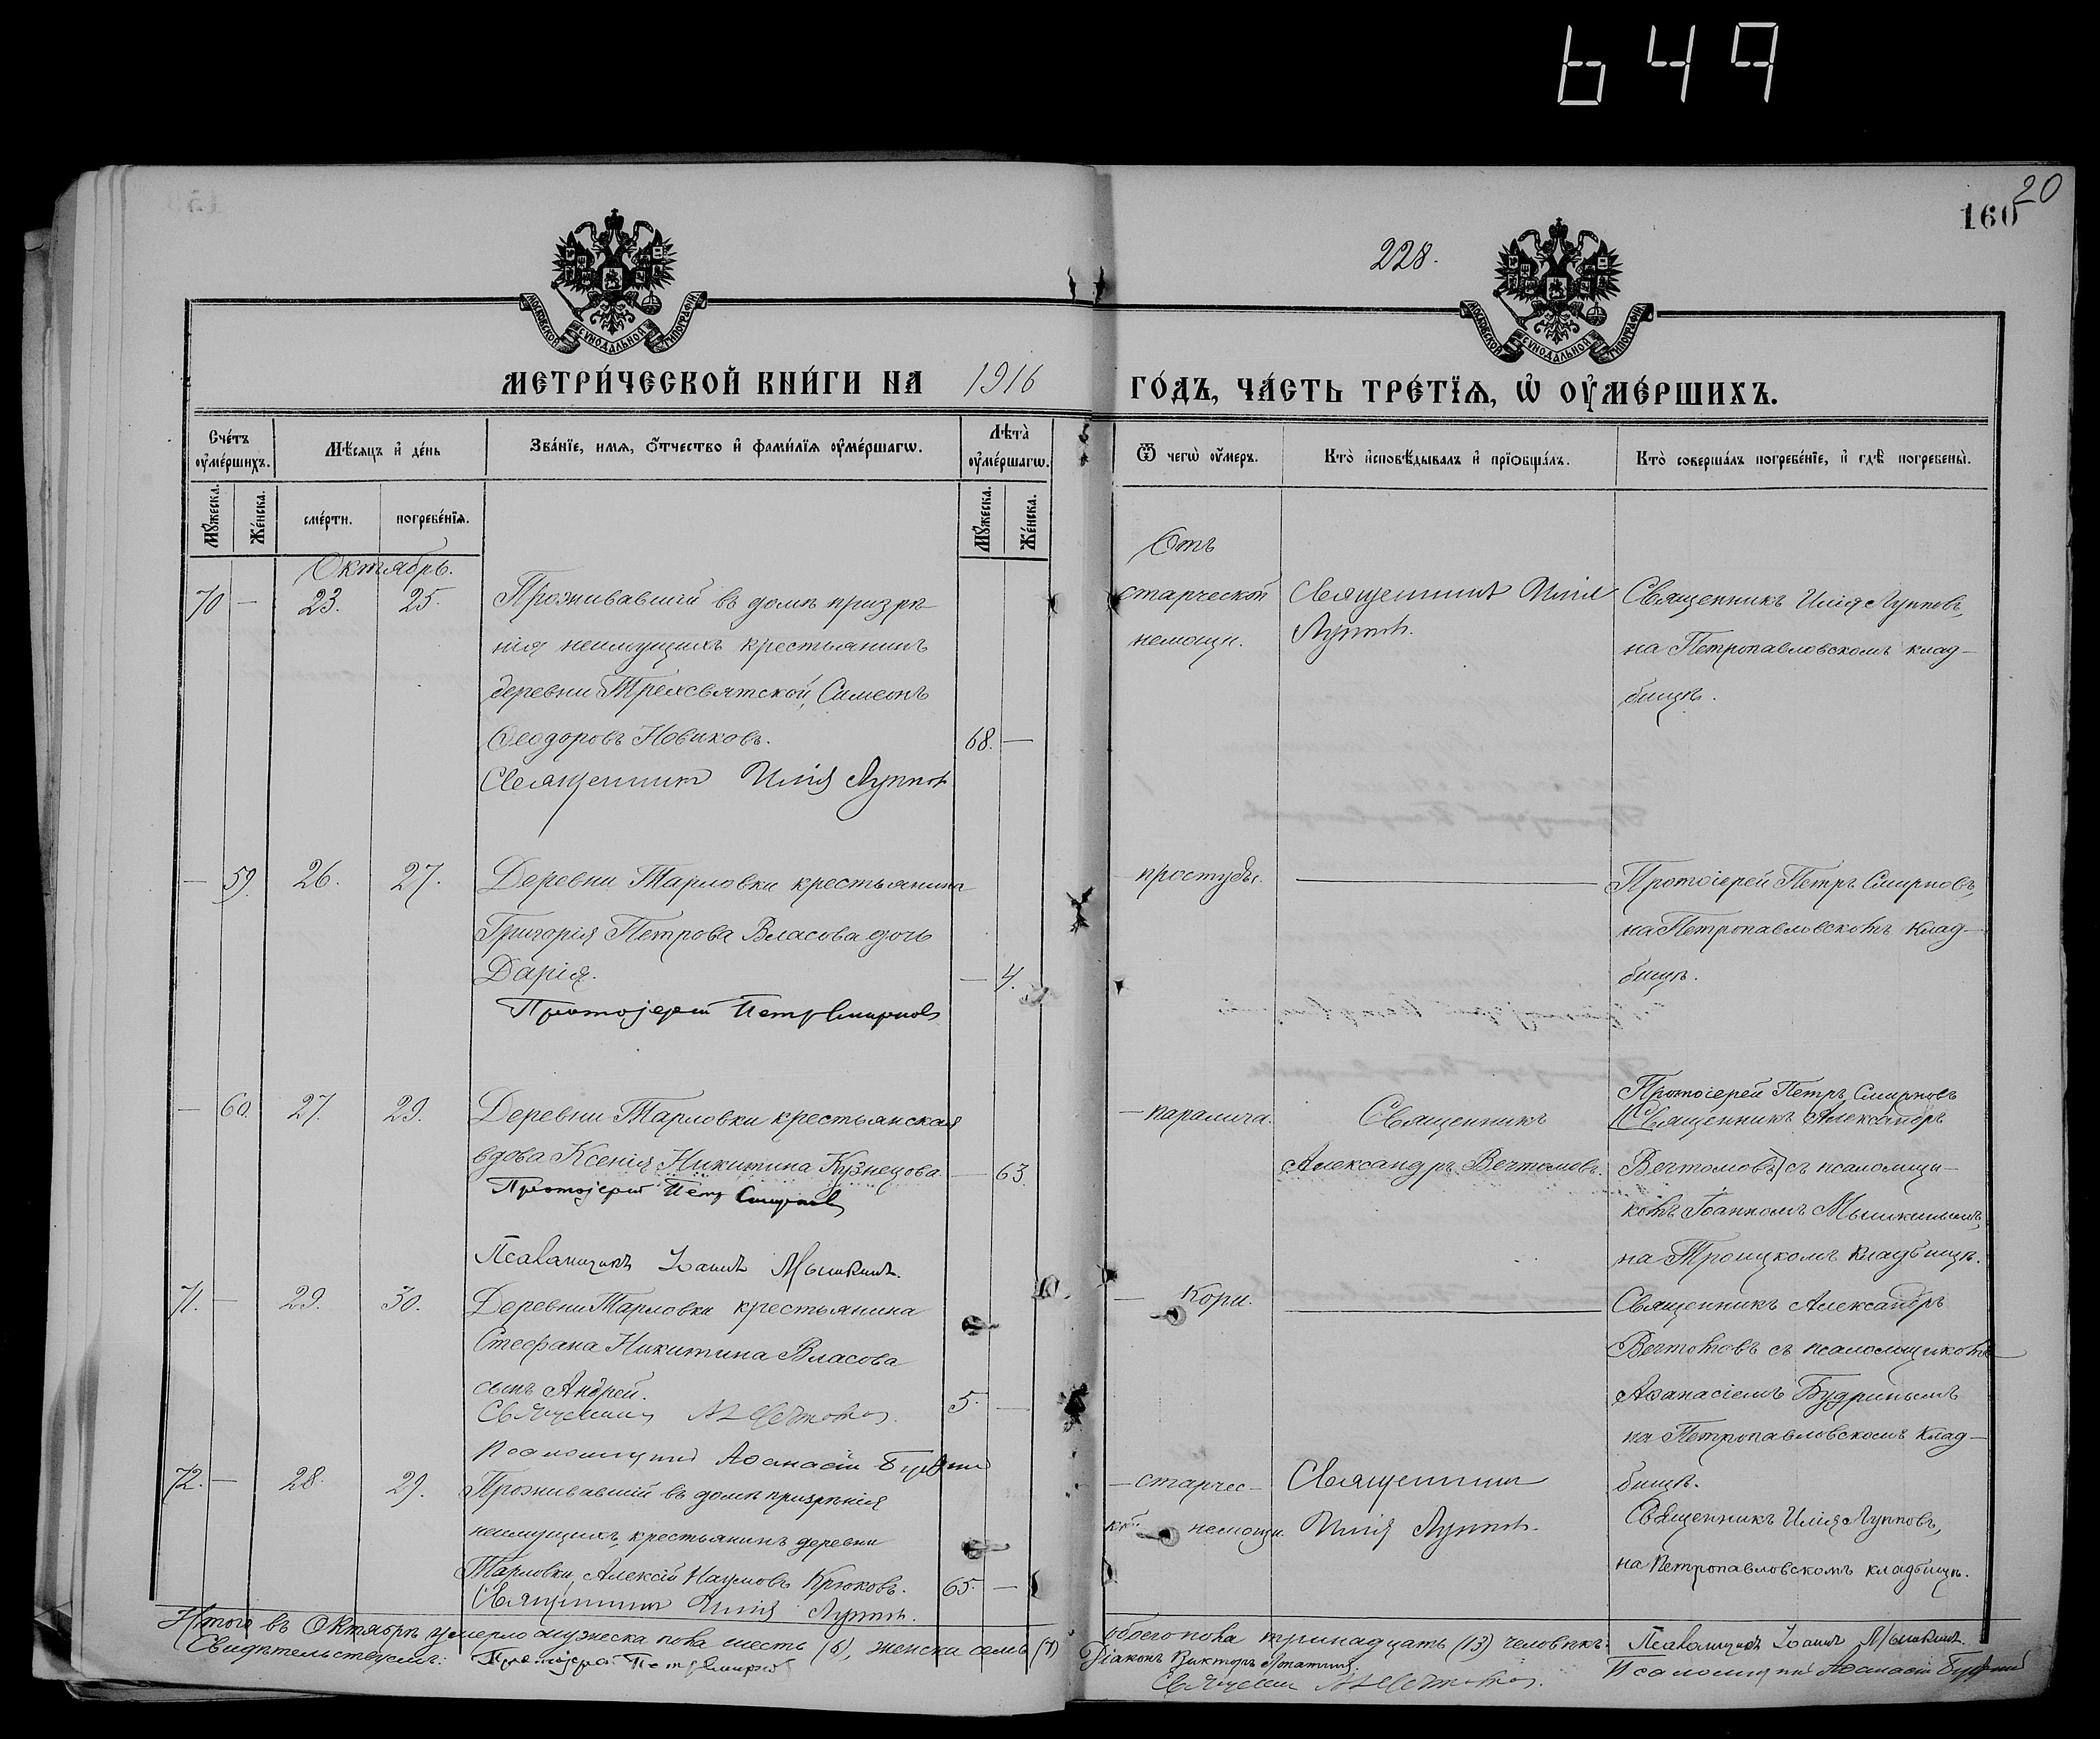 649
20
160
228.
МОСКОВСКОЙ СУНОДАЛЬНОЙ ТИПОГРАФІИ
МОСКОВСКОЙ СУНОДАЛЬНОЙ ТИПОГРАФІИ
МЕТРИ́ЧЕСКОЙ КНИ́ГИ НА 1916 ГО́ДЪ, ЧА́СТЬ ТРЕ́ТЇѦ, Ѡ҆ ОУ҆МЕ́РШИХЪ.
Сче́тъ оу҆ме́ршихъ.
Мѣ́сяцъ и҆ де́нь
Зва́нїе, имѧ, ѻ҆́тчество и҆ фами́лїѧ оу҆ме́ршагѡ.
Лѣта̀ оу҆ме́ршагѡ.
Ѿ чегѡ̀ оу҆́меръ.
Кто̀ и҆сповѣ́дывалъ и҆ прїѡбща́лъ.
Кто̀ соверша́лъ погребе́нїе, и҆ гдѣ̀ погребены̀.
Мꙋ́жеска.
Же́нска.
сме́рти.
погребе́нїѧ.
Мꙋ́жеска.
Же́нска.
Октябрь.
70 — 23. 25.
Проживавшій въ домѣ призрѣ-
нія неимущихъ крестьянинъ
деревни Трехсвятской, Симеонъ
Ѳеодоровъ Новиковъ. 68. —
Священникъ Илія Лупповъ
Отъ
старческой
немощи.
Священникъ Илія
Лупповъ.
Священникъ Илія Лупповъ,
на Петропавловскомъ клад-
бищѣ.
— 59. 26. 27.
Деревни Тарловки крестьянина
Григорія Петрова Власова дочь
Дарія. — 4.
Протоіерей Петръ Смирновъ
простуды. —
Протоіерей Петръ Смирновъ,
на Петропавловскомъ клад-
бищѣ.
— 60. 27. 29.
Деревни Тарловки крестьянская
вдова Ксенія Никитина Кузнецова. — 63.
Протоіерей Петръ Смирновъ
Псаломщикъ Іоаннъ Мышкинъ.
— паралича.
Священникъ
Александръ Вечтомовъ.
Протоіерей Петръ Смирновъ
(Священникъ Александръ
Вечтомовъ) съ псаломщи-
комъ Іоанномъ Мышкинымъ,
на Троицкомъ кладбищѣ.
71. — 29. 30.
Деревни Тарловки крестьянина
Стефана Никитина Власова
сынъ Андрей. 5. —
Священникъ А Вечтомовъ.
Псаломщикъ Аѳанасій Будринъ
— Кори. —
Священникъ Александръ
Вечтомовъ съ псаломщикомъ
Аѳанасіемъ Будринымъ
на Петропавловскомъ клад-
бищѣ.
72. — 28. 29.
Проживавшій въ домѣ призрѣнія
неимущихъ, крестьянинъ деревни
Тарловки, Алексій Наумовъ Крюковъ. 65. —
Священникъ Илія Лупповъ.
— старчес-
кой немощи.
Священникъ
Илія Лупповъ.
Священникъ Илія Лупповъ,
на Петропавловскомъ кладбищѣ.
Итого въ Октябрѣ умерло мужеска пола шесть (6), женска семь (7)
обоего пола тринадцать (13) человѣкъ.
Свидѣтельствуемъ: Протоіерей Петръ Смирновъ
Діаконъ Викторъ Лопатинъ.
Священникъ А Вечтомовъ.
Псаломщикъ Іоаннъ Мышкинъ.
Псаломщикъ Аѳанасій Будринъ